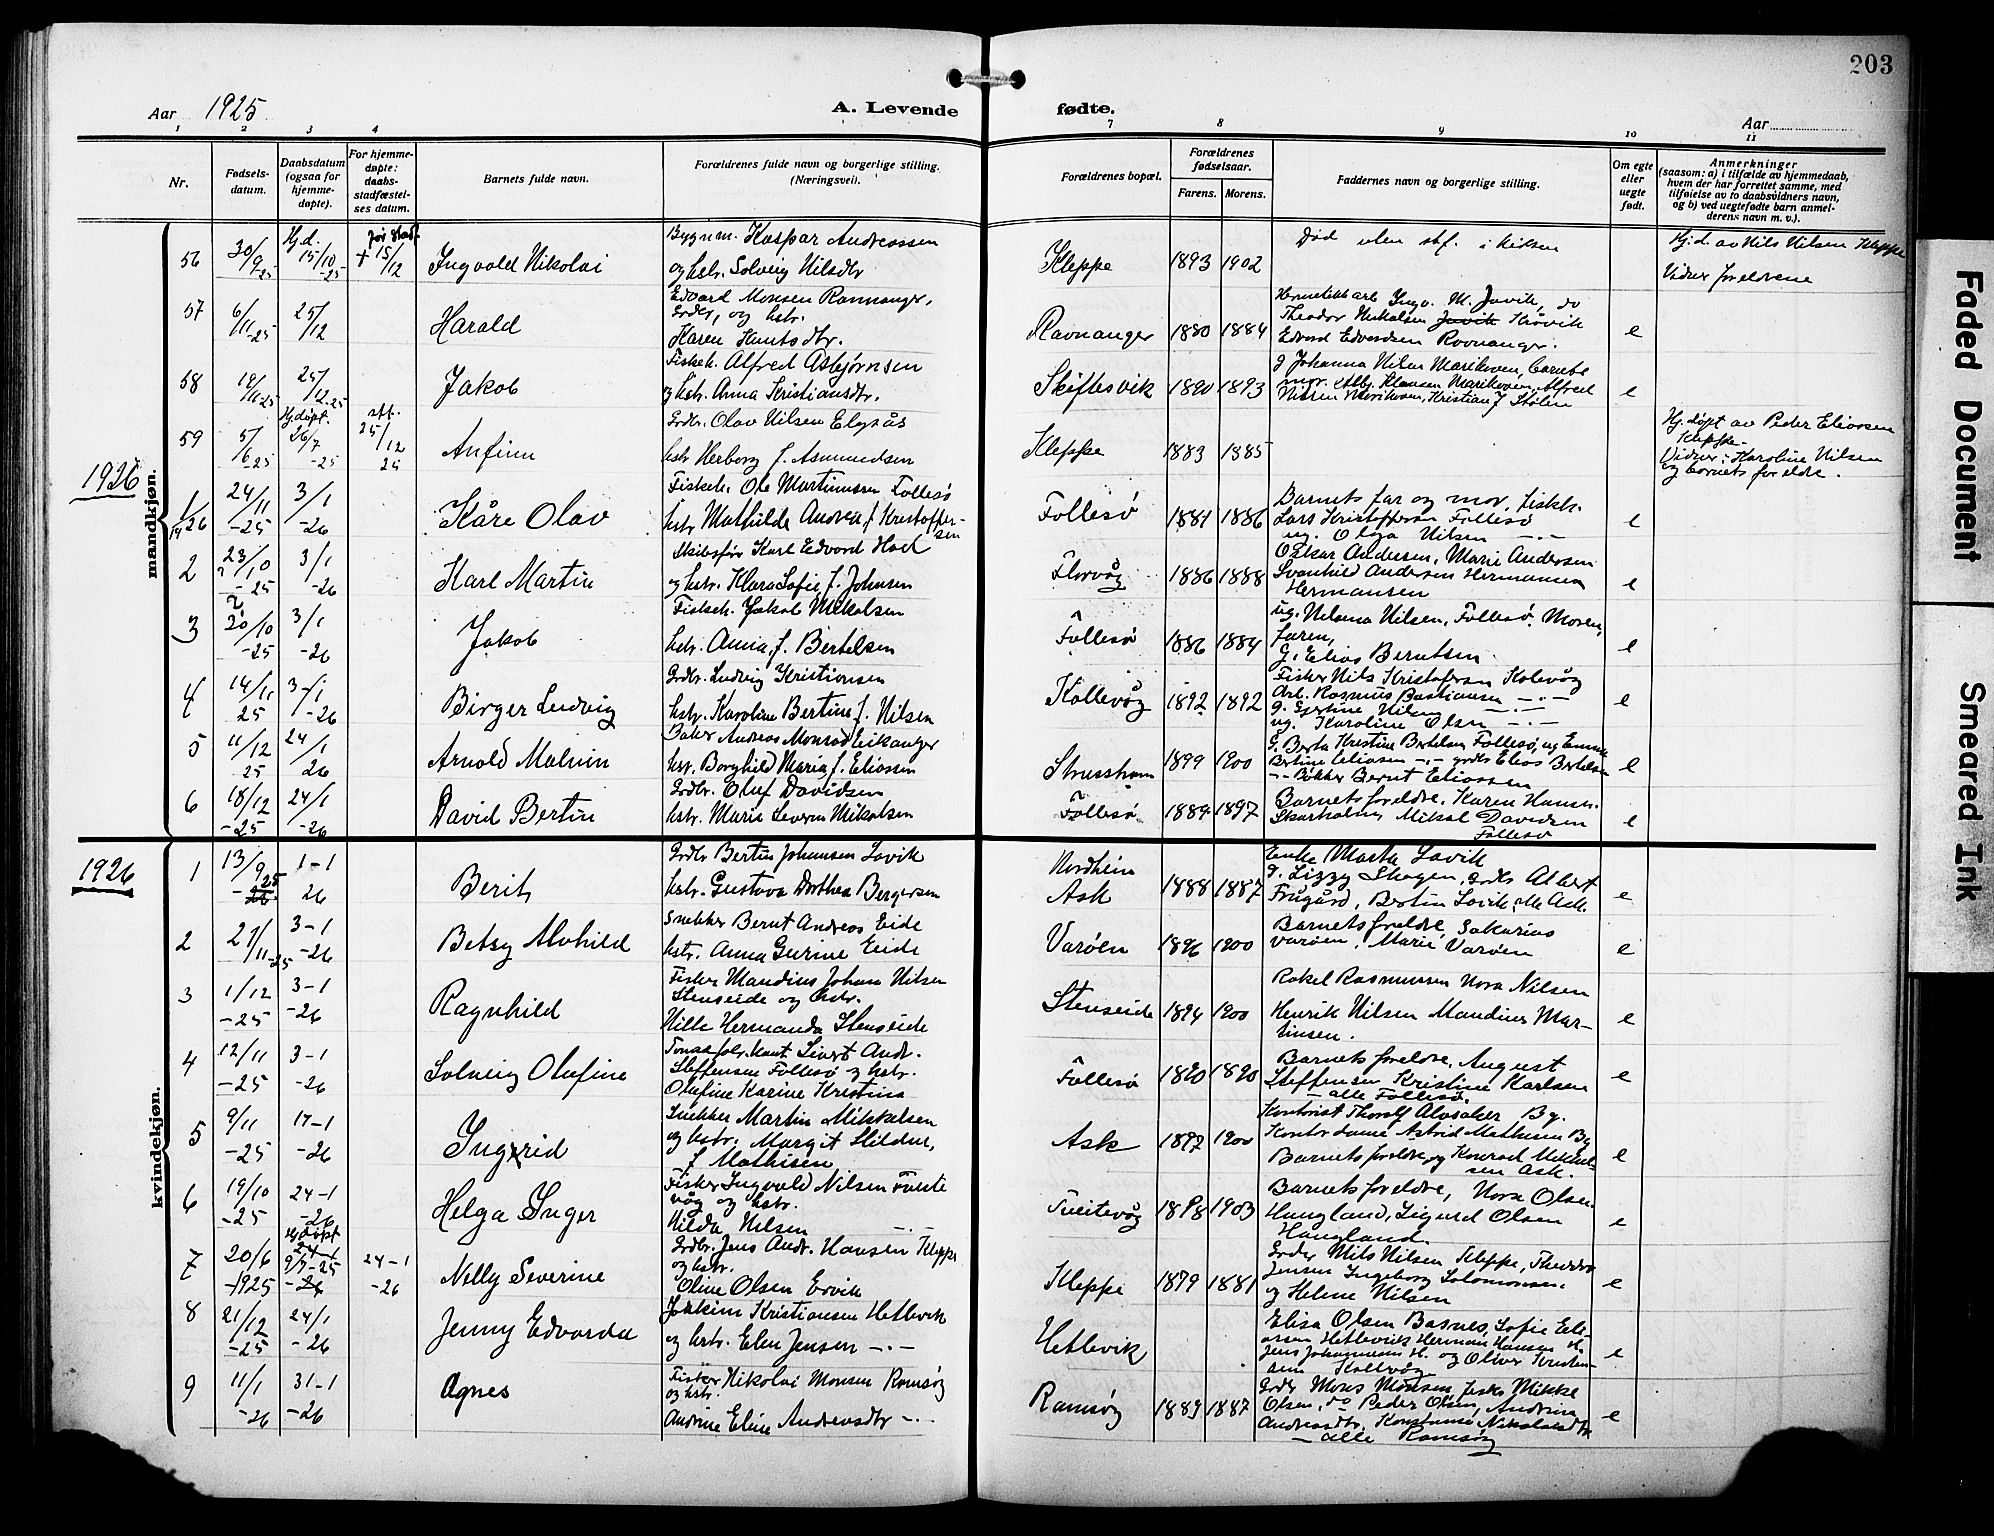 203
Aar 1925
A. Levende
fødte.
Aar
1 2 3 4 7 8 9 10 11
Nr.
Fødsels-
datum.
Daabsdatum
(ogsaa for
hjemme-
døpte).
For hjemme-
døpte:
daabs-
stadfæstel-
ses datum.
Barnets fulde navn.
Forældrenes fulde navn og borgerlige stilling.
(Næringsvei).
Forældrenes bopæl.
Forældrenes
fødselsaar.
Farens. Morens.
Faddernes navn og borgerlige stilling.
Om egte
eller
uegte
født.
Anmerkninger
(saasom: a) i tilfælde av hjemmedaab,
hvem der har forrettet samme, med
tilføielse av to daabsvidners navn,
og b) ved uegtefødte barn anmel-
derens navn m. v.).
mandkjøn.
56 30/9 -25 Hj.d. 15/10 -25 før stadf. + 15/12
Ingvald Nikolai
Bygnm. Kaspar Andreassen
og hstr. Solveig Nilsdtr
Kleppe 1893 1902
Død uten stf. i kirken
Hj.d. av Nils Nilsen Kleppe
Vidner foreldrene
57 6/11 -25 25/12
Harald
Edvard Monsen Ravnanger,
Grdbr, og hstr.
Karen Knutsdtr.
Ravnanger 1880 1884
Hermetikkarb Ingv. M. Juvik, do
Theodor Nikolsen Juvik Krøvik
Edvard Edvardsen Ravnanger.
e
58 19/11-25 25/12-25
Jakob
Fiskeh. Alfred Asbjørnsen
og hstr. Anna Kristiansdtr.
Skiftesvik 1890 1893
g Johanna Nilsen Marikoven, barnets
mor, Klausen Marikoven, Alfred
Nilsen Marikoven, Kristian J Stølen
e
59 5/6 -25 Hj.døpt. 26/7 -25 stf. 25/12 25
Anfinn
Grdbr. Olav Nilsen Elgsås
hstr Herborg f. Asmundsen
Kleppe 1883 1885
Hj. døpt av Peder Eliassen
Kleppe.
Vidner: Karoline Nilsen
og barnets foreldre.
1926
1/26 24/11 -25 3/1 -26
Kåre Olav
Fiskeh. Ole Martinusen Follesø
hstr Mathilde Andrea f Kristoffer-
sen
Follesø 1881 1886
Barnets far og mor, fiskh.
Lars Kristoffersen Follesø
ug. Olga Nilsen -"-
e
2 23/10 -25 3/1 -26
Karl Martin
Skibsfør Karl Edvard Hoel
og hstr. Klara Sofie f. Johnsen
Florvåg 1886 1888
Oskar Andersen, Marie Andersen
Svanhild Andersen Hermanna
Hermansen
e
3 20/10 -25 3/1 -26
Jakob
Fiskeh. Jakob Mikalsen
hstr. Anna f. Bertelsen
Follesø 1886 1884
ug. Nilsina Nilsen, Follesø, Moren,
faren,
G. Elias Berntsen
e
4 14/11 25 3-/1 -26
Birger Ludvig
Grdbr. Ludvig Kristiansen
hstr. Karoline Bertine f. Nilsen
Kollevåg 1892 1892
Fisker Nils Kristofersen Kolevåg
Arb. Rasmus Bastiansen -"-
g. Gjertine Nilsen -"-
ug. Karoline Olsen -"-
e
5 11/12 25 24/1 26
Arnold Malvin
Baker Andreas Monrad Eikanger
hstr. Borghild Maria f. Eliassen
Strusshamn 1899 1900
G. Berta Kristine Bertelsen Follesø, ug Emma
Bertine Eliasen -"- grdbr Elias Bertelsen
-"- Bøkker Bernt Eliassen
e
6 18/12 -25 24/1 -26
David Bertin
Grdbr. Oluf Davidsen
hstr. Marie Severin Mikalsen
Follesø 1889 1897
Barnets foreldre, Karen Hansen
Skarholmen, Mikal Davidsen
Follesø
e
1926
kvindekjøn.
1 13/9 -25 1-1 26
Berit
Grdbr Bertin Johansen Lavik
hstr. Gustava Dorthea Bergersen
Nordheim
Ask 1888 1887
Enke Marta Lavik
G. Lizzy Skogen, Grdbr Albert
Frugård, Bertin Lavik, alle Ask.
e
2 27/11-25 3-1 -26
Betsy Alvhild
Snekker Bernt Andreas Eide
hstr. Anna Gurine Eide
Varøen 1896 1900
Barnets foreldre, Sakarias
Varøen, Marie Varøen
e
3 1/12 -25 3-1 -26
Ragnhild
Fisker Mandius Johan Nilsen
Stenseide og hstr.
Hilla Hermanda Stenseide
Stenseide 1894 1900
Rakel Rasmussen Nora Nilsen
Henrik Nilsen Mandius Mar-
tinsen.
e
4 12/11 -25 3-1 -26
Solveig Olufine
Sivert Andr.
Steffensen Follesø og hstr.
Olufine Karine Kristina
Follesø 1890 1890
Barnets foreldre, August
Steffensen Kristine Karlsen
- alle Follesø.
e
5 9/11 -25 17-1 -26
Ingrid
Snekker Martin Mikkelsen
og hstr. Margit Hildur,
f Mathisen
Ask 1897 1900
Kontorist Thorolf Alvsaker By.
Kontordame Astrid Mathisen By
Barnets foreldre, og Konrad Mikkel-
sen Ask.
e
6 19/10 -25 24-1 -26
Helga Inger
Fisker Ingvald Nilsen Tveite
våg og hstr.
Hilda Nilsen -"-
Tveitevåg 1898 1903
Barnets foreldre, Nora Olsen
Haugland, Sigurd Olsen
Haugland.
e
7 20/6 -1925 Hj døpt 9/7-25 24-1 -26
Nelly Severine
Grdbr. Jens Andr. Hansen Kleppe
og hstr.
Oline Olsen Ervik
Kleppe 1879 1881
Grdbr Nils Nilsen Kleppe, Theodor
Jensen Ingeborg Solomonsen.
og Helene Nilsen
e
8 21/12 -25 24/1 -26
Jenny Edvarda
Joakim Kristiansen Hetlevik
og hstr. Elen Jensen -"-
Hetlevik
Elisa Olsen Basnes, Sofie Eli-
assen Hetlevik Herman Hansen H.
Jens Johannesen H. og Oliver Kristen-
sen Kollevåg
e
9 11/1 -26 31-1 -26
Agnes
Fisker Nikolai Monsen Ramsøy
og hstr.
Andrine Eline Andreasdtr -"-
Ramsøy 1889 1887
Grdbr Mons Monsen, fisker Mikke
Olsen, do Peder Olsen, Andrine
Andreasdtr, Konstanse Nikolaisdtr
- alle Ramsøy
e
Faded Document
Smeared Ink